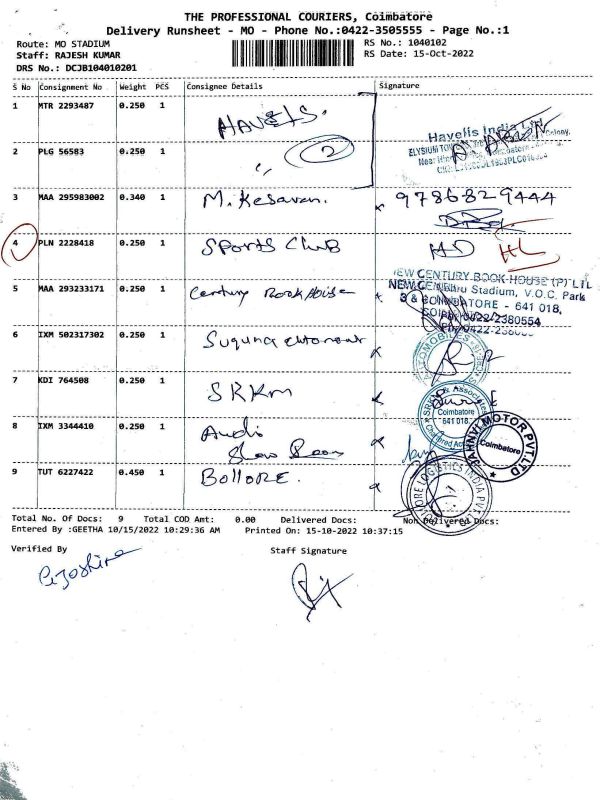 THE PROFESSIONAL COURIERS, Coimbatore
Delivery Runsheet - MO - Phone No.:0422-3505555 - Page No.:1
Route: MO STADIUM
Staff: RAJESH KUMAR
DRS No.: DCJB104010201
RS No.: 1040102
RS Date: 15-Oct-2022
S No Consignment No Weight PCS Consignee Details Signature
1 MTR 2293487 0.250 1 HAVELLS.
Havells India Ltd
2 PLG 56583 0.250 1 〃 2
3 MAA 295983002 0.340 1 M. Kesavan. 9786829444
4 PLN 2228418 0.250 1 Sports Club
5 MAA 293233171 0.250 1 Century Book House
NEW CENTURY BOOK HOUSE (P) LTD
Nehru Stadium, V.O.C. Park
COIMBATORE - 641 018.
0422-2380554
6 IXM 502317302 0.250 1 Suguna
7 KDI 764508 0.250 1 SRKM
SRKM & Associates
Coimbatore
641 018.
8 IXM 3344410 0.250 1 Audi
Show Room
MOTOR PVT. LTD
Coimbatore
9 TUT 6227422 0.450 1 Bollore.
LOGISTICS INDIA PVT. LTD
Total No. Of Docs: 9 Total COD Amt: 0.00 Delivered Docs: Non Delivered Docs:
Entered By :GEETHA 10/15/2022 10:29:36 AM Printed On: 15-10-2022 10:37:15
Verified By Staff Signature